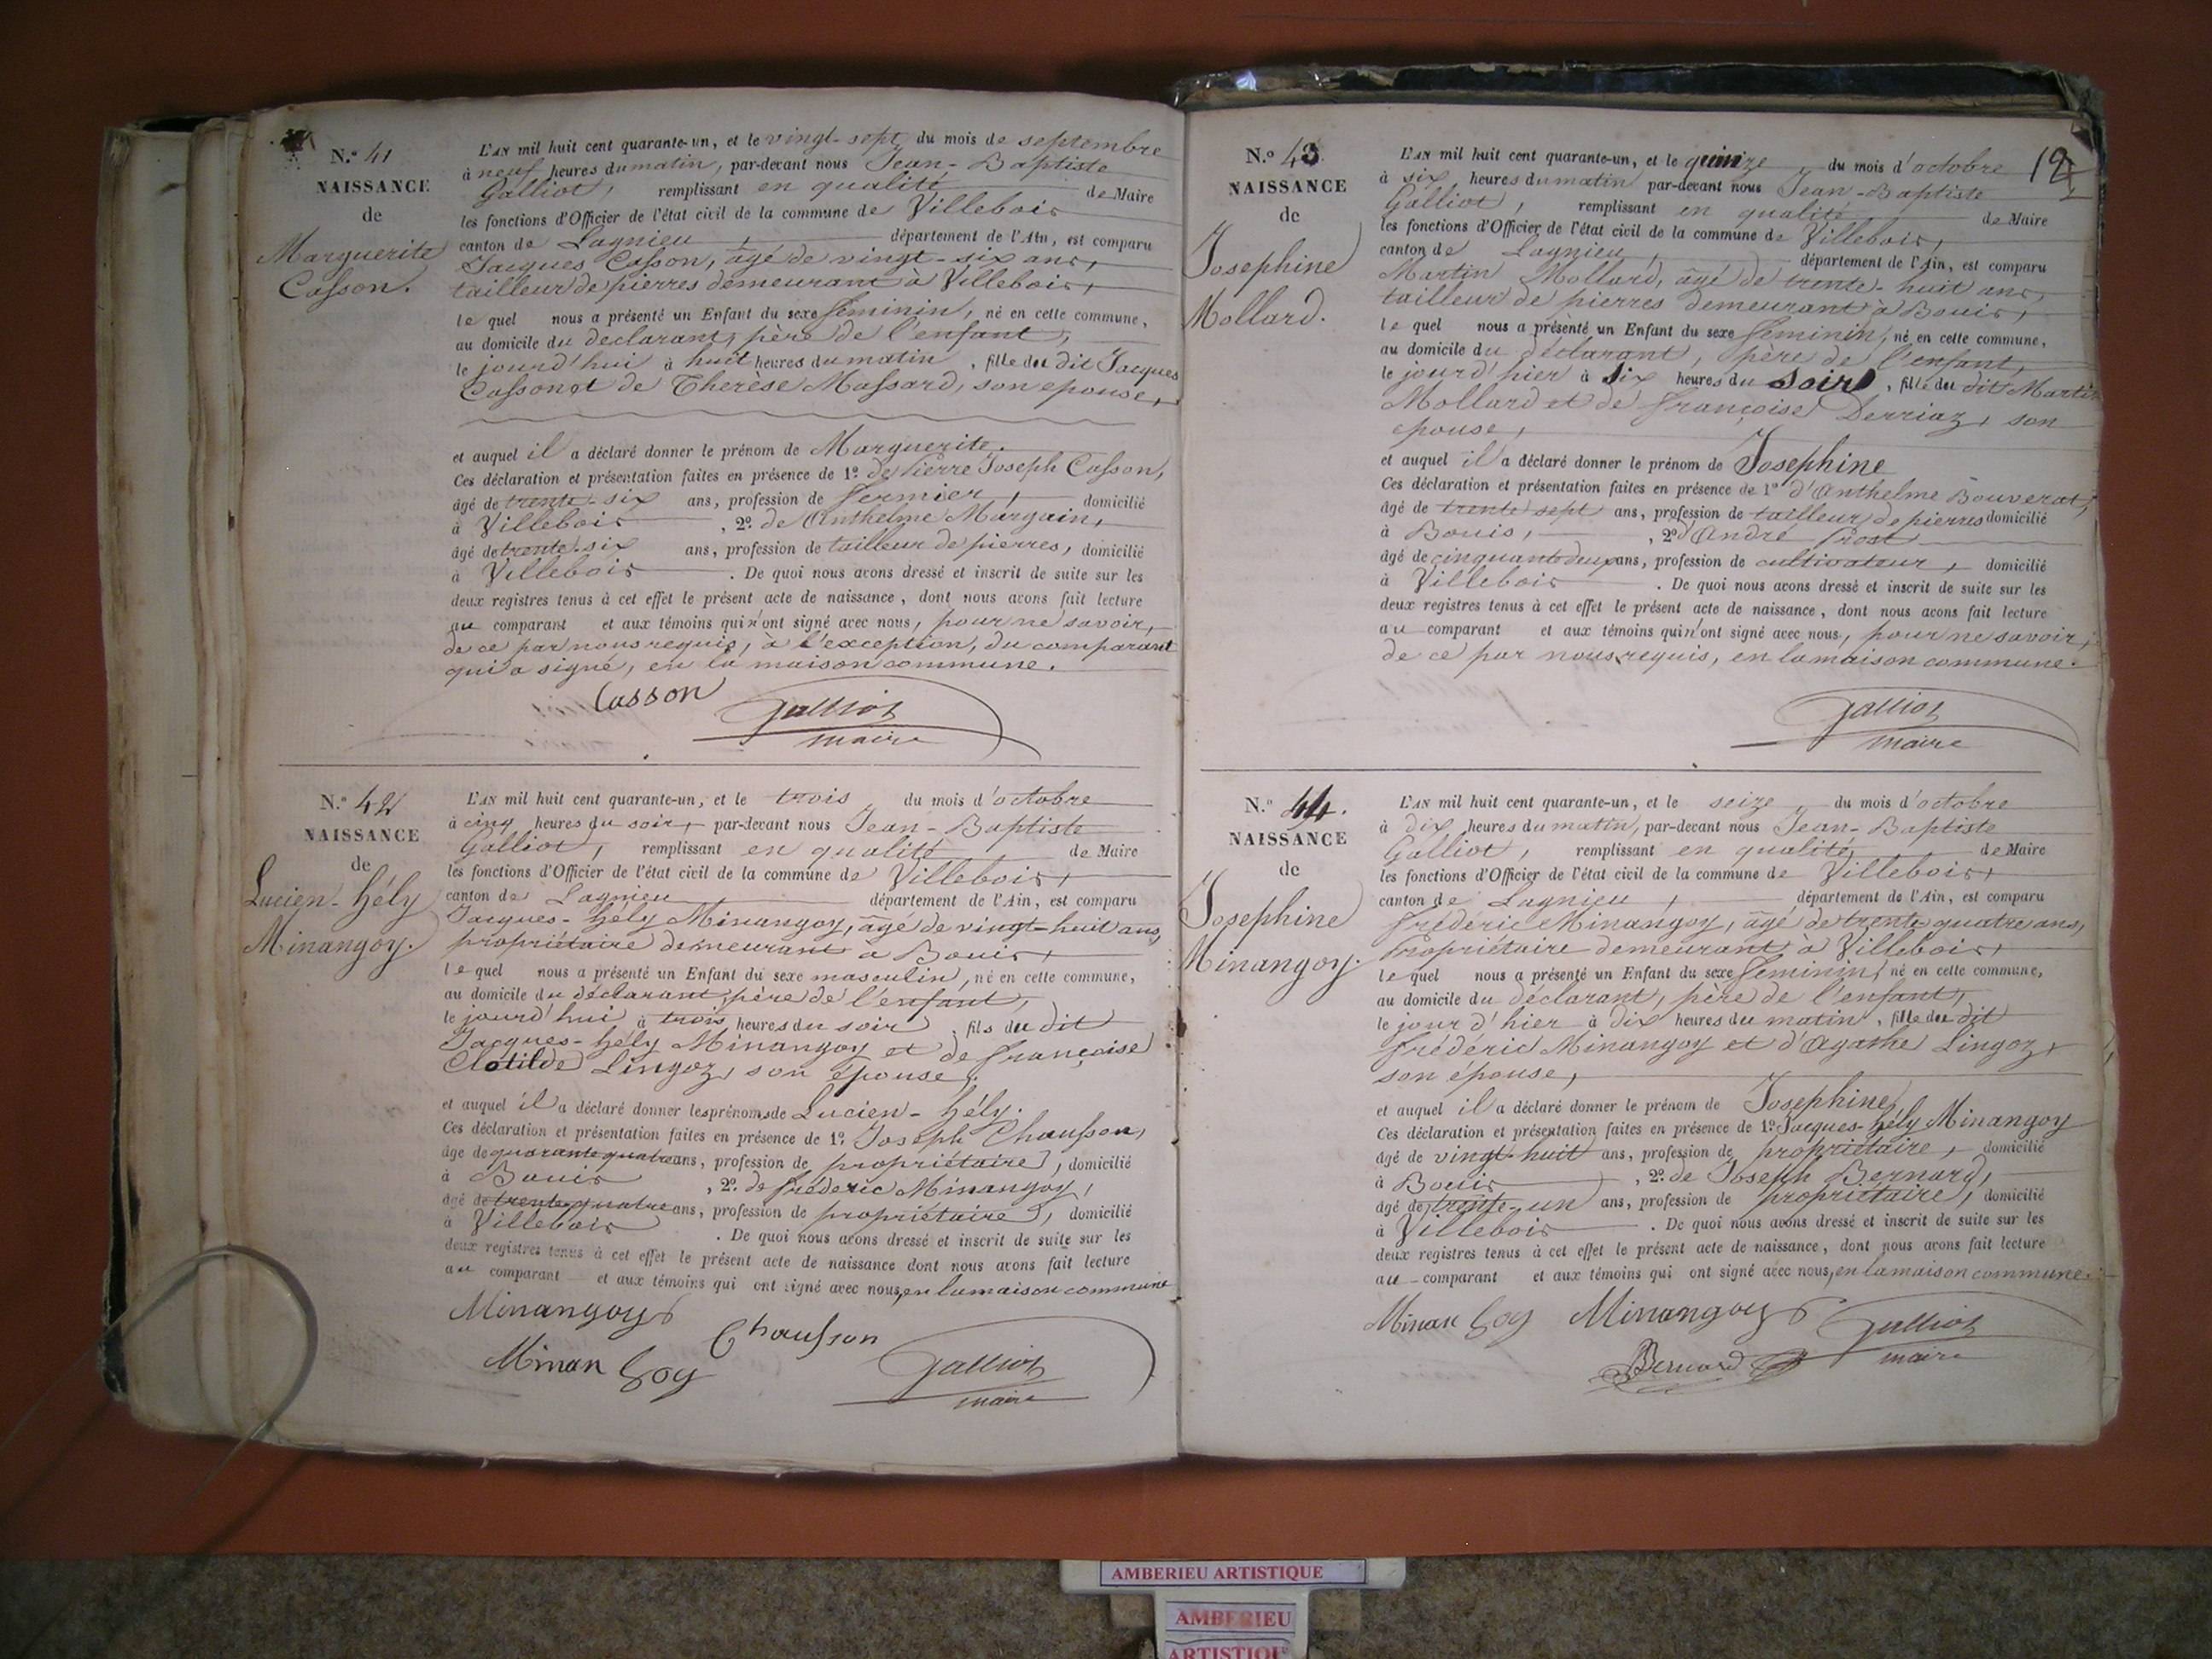 N.° 41
NAISSANCE
de
Marguerite
Casson.
L'AN mil huit cent quarante-un, et le vingt-sept du mois de septembre
à neuf heures du matin, par-devant nous Jean-Baptiste
Galliot, remplissant en qualité de Maire
les fonctions d'Officier de l'état civil de la commune de Villebois
canton de Lagnieu, département de l'Ain, est comparu
Jacques Casson, âgé de vingt-six ans,
tailleur de pierres demeurant à Villebois,
le quel nous a présenté un Enfant du sexe feminin, né en cette commune,
au domicile du declarant, père de l'enfant,
le jourd'hui à huit heures du matin, fille du dit Jacques
Casson et de Therèse Massard, son epouse,
et auquel il a déclaré donner le prénom de Marguerite.
Ces déclaration et présentation faites en présence de 1.° de Pierre Joseph Casson,
âgé de trente-six ans, profession de fermier, domicilié
à Villebois, 2.° de Anthelme Margain,
âgé de trente-six ans, profession de tailleur de pierres, domicilié
à Villebois. De quoi nous avons dressé et inscrit de suite sur les
deux registres tenus à cet effet le présent acte de naissance, dont nous avons fait lecture
au comparant et aux témoins qui n'ont signé avec nous, pour ne savoir,
de ce par nous requis, à l'exception, du comparant
qui a signé, en la maison commune.
Casson Galliot
maire
N.° 42
NAISSANCE
de
Lucien-hély
Minangoy.
L'AN mil huit cent quarante-un, et le trois du mois d'octobre
à cinq heures du soir, par-devant nous Jean-Baptiste
Galliot, remplissant en qualité de Maire
les fonctions d'Officier de l'état civil de la commune de Villebois,
canton de Lagnieu département de l'Ain, est comparu
Jacques-hély Minangoy, âgé de vingt-huit ans,
propriétaire demeurant à Bouis,
le quel nous a présenté un Enfant du sexe masculin, né en cette commune,
au domicile du déclarant, père de l'enfant,
le jourd'hui à trois heures du soir, fils du dit
Jacques-hély Minangoy et de françoise
Clotilde Lingoz, son épouse,
et auquel il a déclaré donner les prénoms de Lucien-hély.
Ces déclaration et présentation faites en présence de 1.° Joseph Chausson,
âgé de quarante quatre ans, profession de propriétaire, domicilié
à Bouis, 2.° de frédéric Minangoy,
âgé de trente quatre ans, profession de propriétaire, domicilié
à Villebois. De quoi nous avons dressé et inscrit de suite sur les
deux registres tenus à cet effet le présent acte de naissance dont nous avons fait lecture
au comparant et aux témoins qui ont signé avec nous, en la maison commune
Minangoy Chausson
Minan goy Galliot
maire
12
N.° 43
NAISSANCE
de
Josephine
Mollard.
L'AN mil huit cent quarante-un, et le quinze du mois d'octobre
à six heures du matin par-devant nous Jean-Baptiste
Galliot, remplissant en qualité de Maire
les fonctions d'Officier de l'état civil de la commune de Villebois,
canton de Lagnieu, département de l'Ain, est comparu
Martin Mollard, âgé de trente-huit ans,
tailleur de pierres demeurant à Bouis,
le quel nous a présenté un Enfant du sexe feminin, né en cette commune,
au domicile du déclarant, père de l'enfant,
le jourd'hier à six heures du soir, fille du dit Martin
Mollard et de françoise Derriaz, son
epouse,
et auquel il a déclaré donner le prénom de Josephine
Ces déclaration et présentation faites en présence de 1° d'Anthelme Bouverat,
âgé de trente sept ans, profession de tailleur de pierres domicilié
à Bouis, 2° d'André Prost
âgé de cinquante deux ans, profession de cultivateur, domicilié
à Villebois. De quoi nous avons dressé et inscrit de suite sur les
deux registres tenus à cet effet le présent acte de naissance, dont nous avons fait lecture
au comparant et aux témoins qui n'ont signé avec nous, pour ne savoir,
de ce par nous requis, en la maison commune.
Galliot
maire
N.° 44.
NAISSANCE
de
Josephine
Minangoy.
L'AN mil huit cent quarante-un, et le seize du mois d'octobre
à dix heures du matin, par-devant nous Jean-Baptiste
Galliot, remplissant en qualité de Maire
les fonctions d'Officier de l'état civil de la commune de Villebois,
canton de Lagnieu, département de l'Ain, est comparu
frédéric Minangoy, âgé de trente quatre ans,
propriétaire demeurant à Villebois,
le quel nous a présenté un Enfant du sexe feminin, né en cette commune,
au domicile du déclarant, père de l'enfant,
le jour d'hier à dix heures du matin, fille du dit
frédéric Minangoy et d'Agathe Lingoz,
son épouse,
et auquel il a déclaré donner le prénom de Josephine
Ces déclaration et présentation faites en présence de 1.° Jacques-hély Minangoy
âgé de vingt-huit ans, profession de propriétaire, domicilié
à Bouis, 2.° de Joseph Bernard,
âgé de trente-un ans, profession de propriétaire, domicilié
à Villebois. De quoi nous avons dressé et inscrit de suite sur les
deux registres tenus à cet effet le présent acte de naissance, dont nous avons fait lecture
au comparant et aux témoins qui ont signé avec nous, en la maison commune.
Minan goy Minangoy Galliot
Bernard maire
AMBERIEU ARTISTIQUE
AMBERIEU
ARTISTIQU